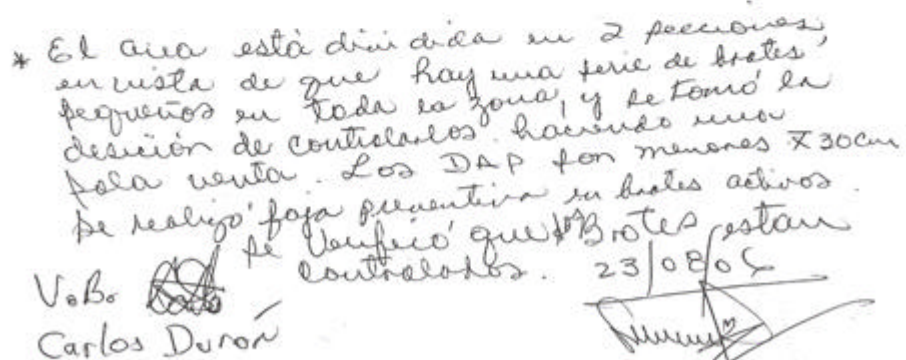 * El area está dividida en 2 secciones,
en vista de que hay una serie de brotes
pequeños en toda la zona, y se tomó la
desición de controlarlos haciendo una
sola venta. Los DAP son menores x̄ 30cm
se realizó faja preventiva en brotes activos.
se Verificó que los Brotes estan
controlados. 23/08/06
VoBo
Carlos Duron